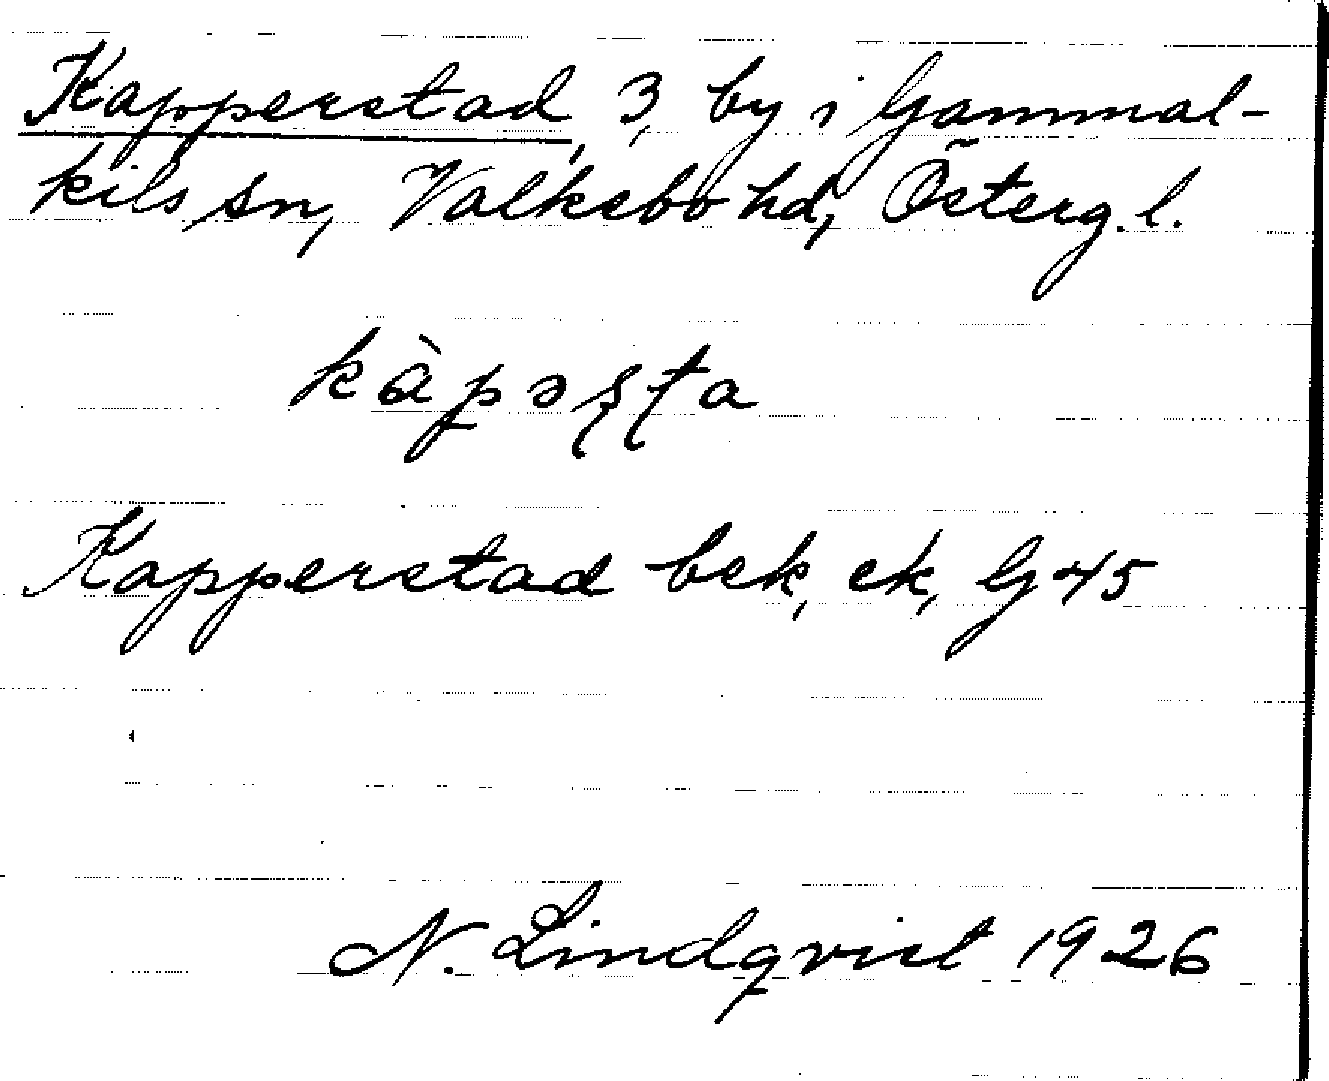 Kapperstad, 3, by i Gammal-
kils sn, Valkebo hd, Österg. l.
kàpəʂʈa
Kapperstad bek, ek, G 45
N. Lindqvist 1926